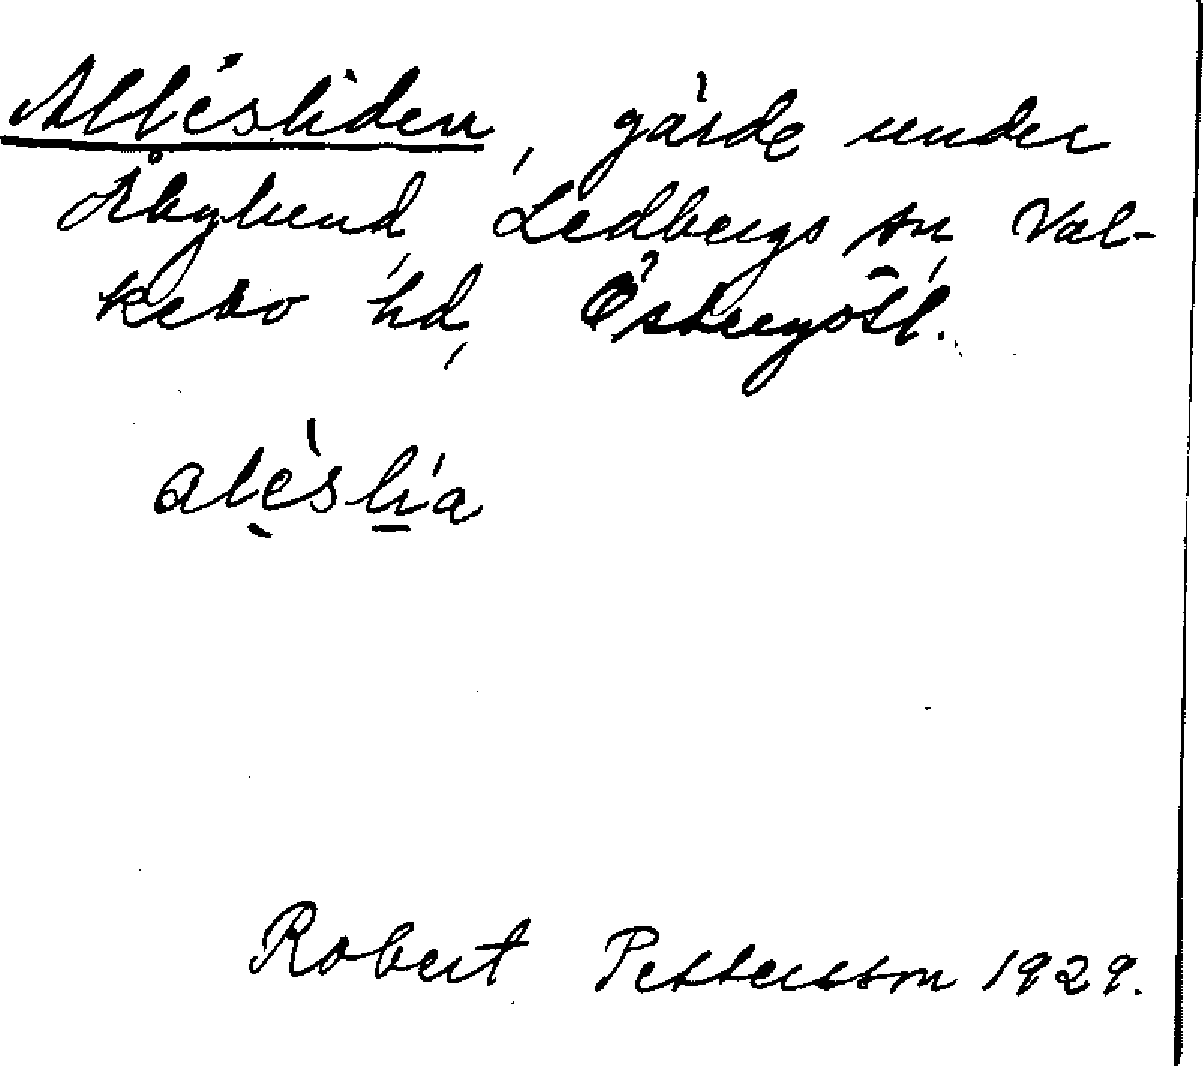 Allésliden, gärde under
Åbylund, Ledbergs sn, Val-
kebo hd, Östergötl.
aléslia
Robert Pettersson 1929.